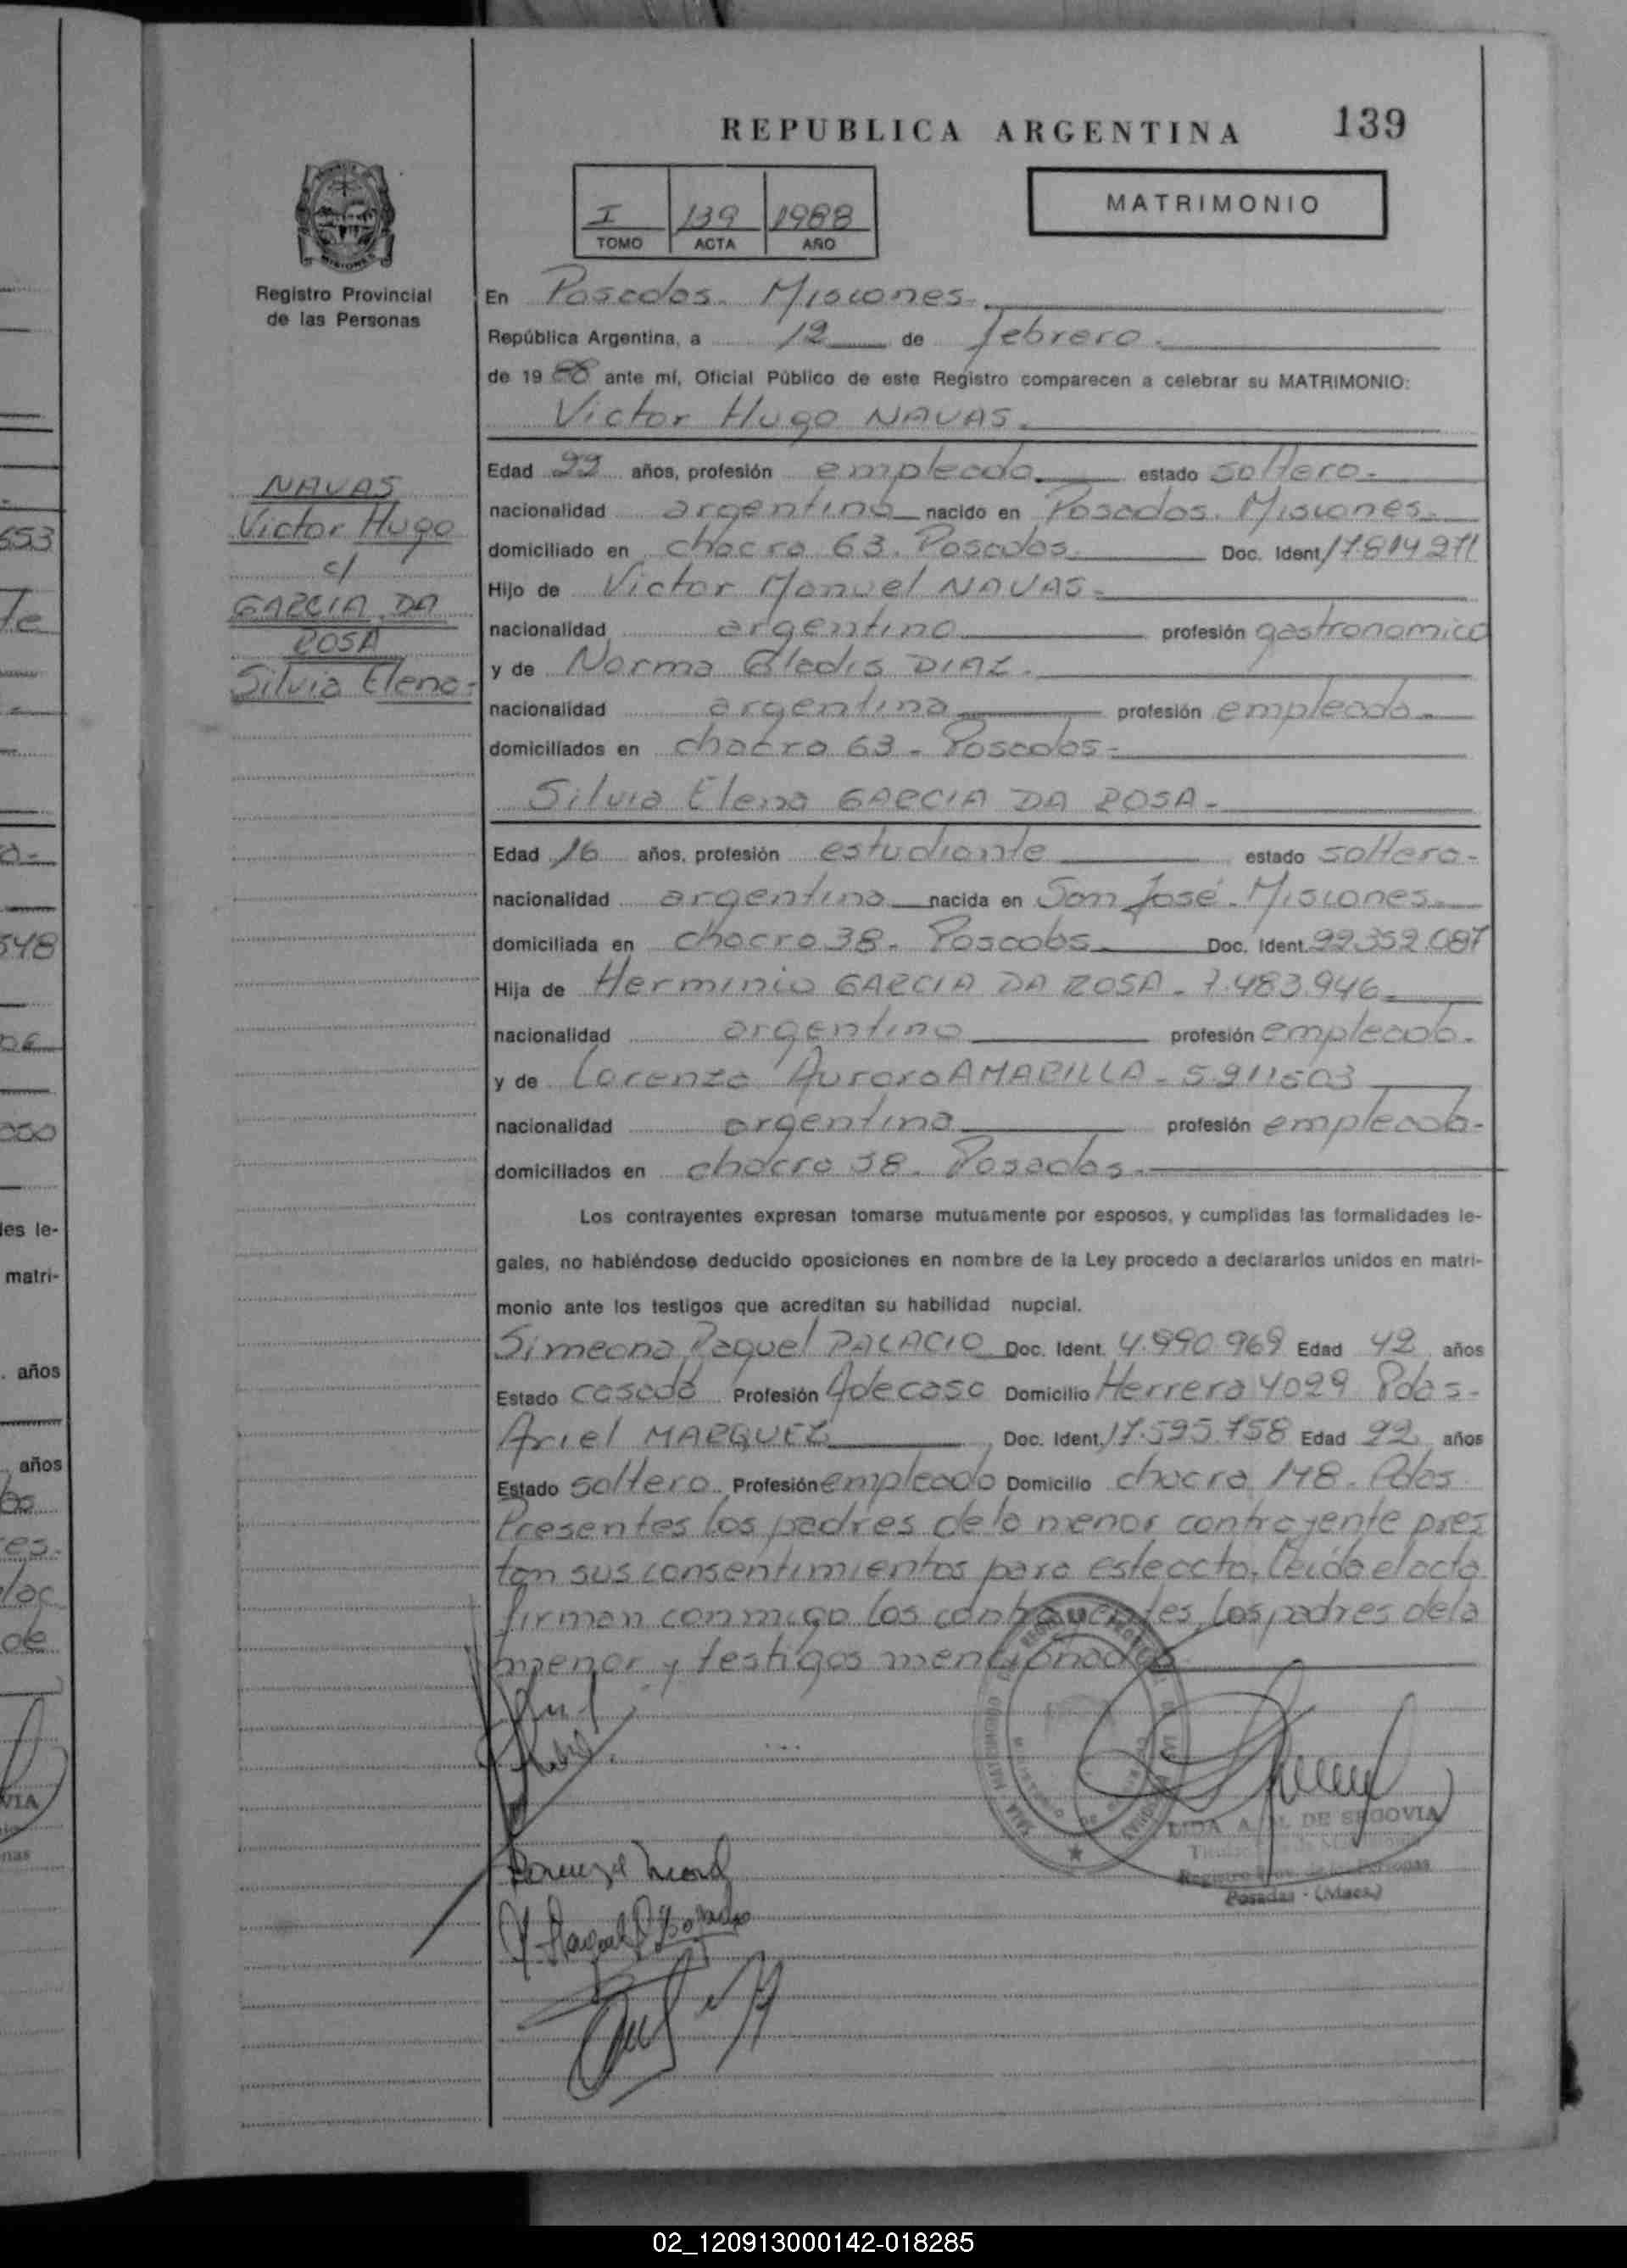 REPUBLICA ARGENTINA
139
I 139 1988
TOMO ACTA AÑO
MATRIMONIO
Registro Provincial
de las Personas
En Posadas. Misiones.
República Argentina, a 12 de febrero.
de 1988 ante mí, Oficial Público de este Registro comparecen a celebrar su MATRIMONIO:
Victor Hugo NAVAS.
NAVAS
Victor Hugo
c/
GARCIA DA
ROSA
Silvia Elena-
Edad 22 años, profesión empleado. estado soltero.
nacionalidad argentino nacido en Posadas. Misiones.
domiciliado en chacra 63. Posadas. Doc. Ident. 17.814271
Hijo de Victor Manuel NAVAS-
nacionalidad argentino profesión gastronomico
y de Norma Gledis DIAZ.
nacionalidad argentina profesión empleada-
domiciliados en chacra 63 - Posadas-
Silvia Elena GARCIA DA ROSA-
Edad 16 años, profesión estudiante estado soltera-
nacionalidad argentina nacida en San José. Misiones.
domiciliada en chacra 38. Posadas. Doc. Ident. 22.352.087
Hija de Herminio GARCIA DA ROSA - 7.483.946
nacionalidad argentino profesión empleado.
y de Lorenza Aurora AMARILLA - 5.911503
nacionalidad argentina profesión empleada-
domiciliados en chacra 38. Posadas.
Los contrayentes expresan tomarse mutuamente por esposos, y cumplidas las formalidades le-
gales, no habiéndose deducido oposiciones en nombre de la Ley procedo a declararlos unidos en matri-
monio ante los testigos que acreditan su habilidad nupcial.
Simeona Raquel PALACIO Doc. Ident. 4.990.969 Edad 42 años
Estado casada Profesión Adecasa Domicilio Herrera 4029 Pdas-
Ariel MARQUEZ Doc. Ident. 17.595.758 Edad 22 años
Estado soltero Profesión empleado Domicilio chacra 148. Pdas
Presentes los padres de la menor contrayente pres
tan sus consentimientos para este acto. Leida el acta
firman conmigo los contrayentes, los padres de la
menor y testigos mencionados
LIDA A. M. DE SEGOVIA
Registro Prov. de las Personas
Posadas - (Mnes.)
653
548
les le-
matri-
años
años
de
02_120913000142-018285